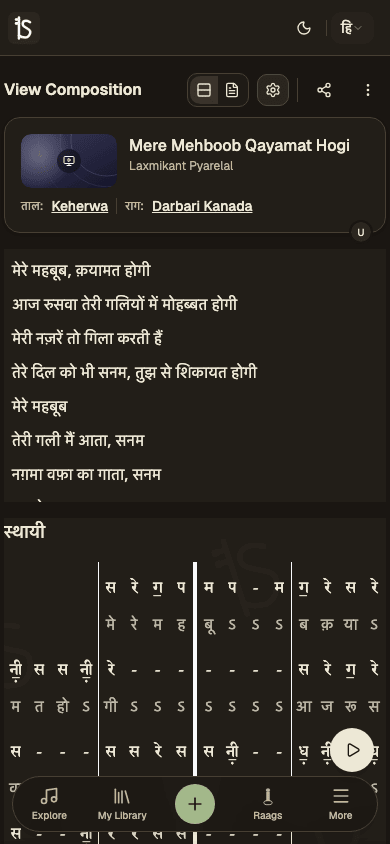 हि
View Composition
Mere Mehboob Qayamat Hogi
Laxmikant Pyarelal
ताल: Keherwa राग: Darbari Kanada
U
मेरे महबूब, क़यामत होगी
आज रुसवा तेरी गलियों में मोहब्बत होगी
मेरी नज़रें तो गिला करती हैं
तेरे दिल को भी सनम, तुझ से शिकायत होगी
मेरे महबूब
तेरी गली मैं आता, सनम
नग़मा वफ़ा का गाता, सनम
स्थायी
स रे ग॒ प म प - म ग॒ रे स रे
मे रे म ह बू ऽ ऽ ऽ ब क़ या ऽ
ऩी॒ स स ऩी॒ रे - - - - - - - स रे ग॒ रे
म त हो ऽ गी ऽ ऽ ऽ ऽ ऽ ऽ ऽ आ ज रू स
स - - - स स रे स स ऩी॒ - - ध़॒
स - - रे रे स स
Explore
My Library
Raags
More